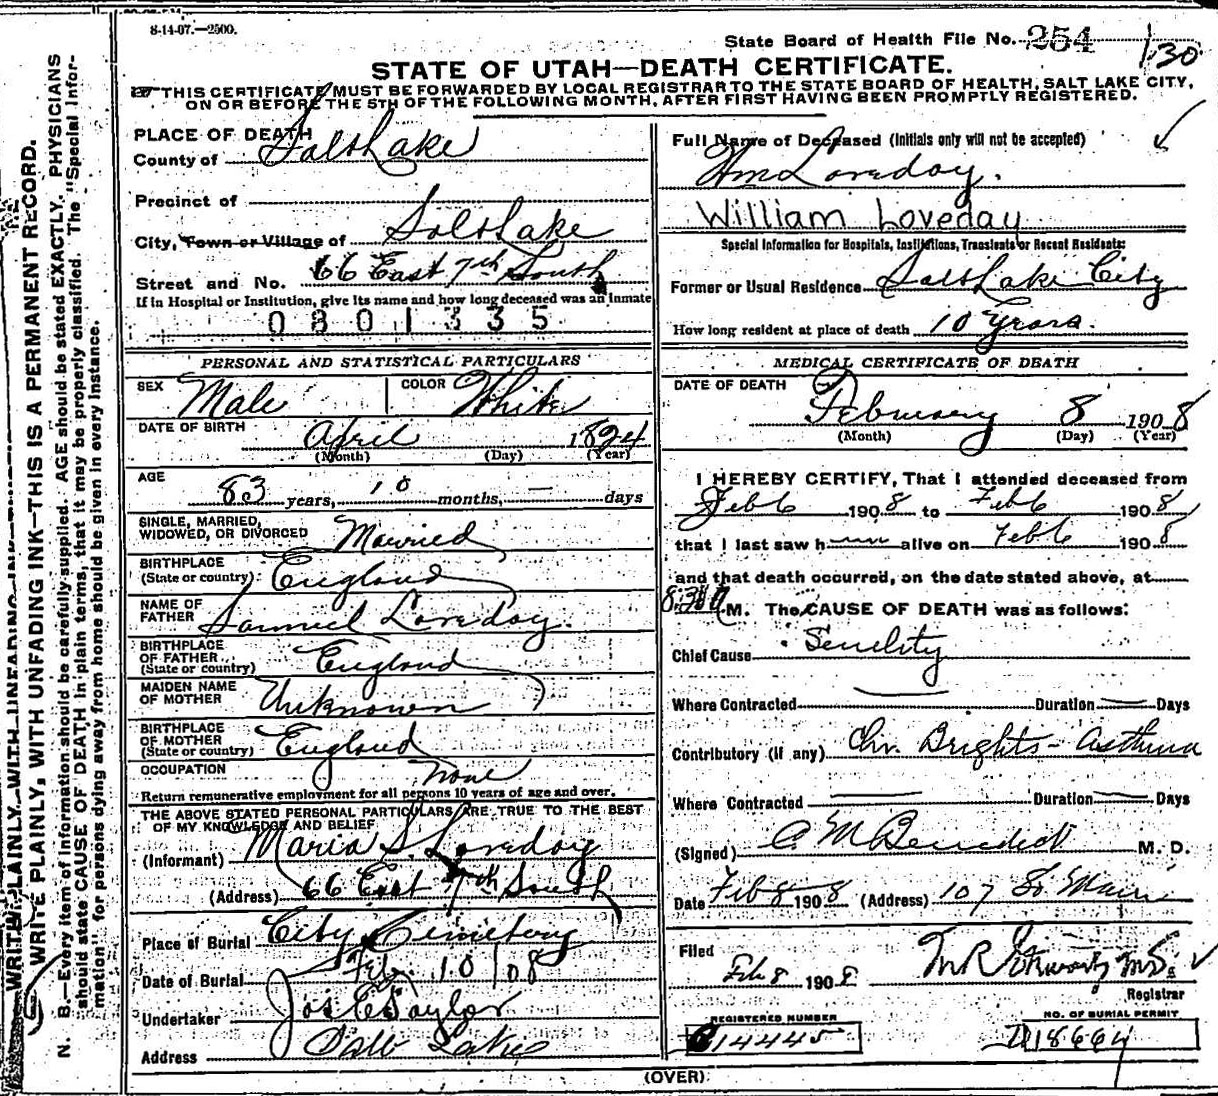 8-14-07.—2500.
State Board of Health File No. 254
130
STATE OF UTAH—DEATH CERTIFICATE.
THIS CERTIFICATE MUST BE FORWARDED BY LOCAL REGISTRAR TO THE STATE BOARD OF HEALTH, SALT LAKE CITY,
ON OR BEFORE THE 5TH OF THE FOLLOWING MONTH, AFTER FIRST HAVING BEEN PROMPTLY REGISTERED.
WRITE PLAINLY, WITH UNFADING INK—THIS IS A PERMANENT RECORD.
N. B.—Every item of information should be carefully supplied. AGE should be stated EXACTLY. PHYSICIANS
should state CAUSE OF DEATH in plain terms, that it may be properly classified. The "Special Infor-
mation" for persons dying away from home should be given in every instance.
PLACE OF DEATH
County of Salt Lake
Precinct of
City, Town or Village of Salt Lake
Street and No. 66 East 7th South
If in Hospital or Institution, give its name and how long deceased was an inmate
0801335
PERSONAL AND STATISTICAL PARTICULARS
SEX Male COLOR White
DATE OF BIRTH April 1824
(Month) (Day) (Year)
AGE 83 years, 10 months, — days
SINGLE, MARRIED,
WIDOWED, OR DIVORCED Married
BIRTHPLACE
(State or country) England
NAME OF
FATHER Samuel Loveday.
BIRTHPLACE
OF FATHER
(State or country) England
MAIDEN NAME
OF MOTHER Unknown
BIRTHPLACE
OF MOTHER
(State or country) England
OCCUPATION None
Return remunerative employment for all persons 10 years of age and over.
THE ABOVE STATED PERSONAL PARTICULARS ARE TRUE TO THE BEST
OF MY KNOWLEDGE AND BELIEF
(Informant) Maria S. Loveday
(Address) 66 East 7th South
Place of Burial City Cemetery
Date of Burial Feb. 10/08
Undertaker Jos E Taylor
Address Salt Lake
Full Name of Deceased (Initials only will not be accepted)
Wm Loveday.
William Loveday
Special Information for Hospitals, Institutions, Transients or Recent Residents:
Former or Usual Residence Salt Lake City
How long resident at place of death 10 Years.
MEDICAL CERTIFICATE OF DEATH
DATE OF DEATH
February 8 1908
(Month) (Day) (Year)
I HEREBY CERTIFY, That I attended deceased from
Feb 6 1908 to Feb 6 1908
that I last saw h im alive on Feb 6 1908
and that death occurred, on the date stated above, at
M. The CAUSE OF DEATH was as follows:
Chief Cause Senility
Where Contracted — Duration — Days
Contributory (if any) Chr. Brights - Asthma
Where Contracted — Duration — Days
(Signed) C M Benedict M. D.
Date Feb 8 1908 (Address) 107 So Main
Filed
Feb 8 1908
Registrar
REGISTERED NUMBER
14445
NO. OF BURIAL PERMIT
(OVER)